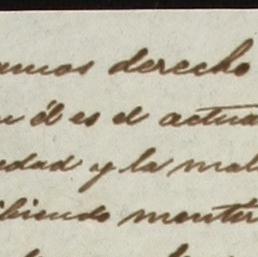 amos derecho
él es el actua
edad y la mal
ibiendo mentir